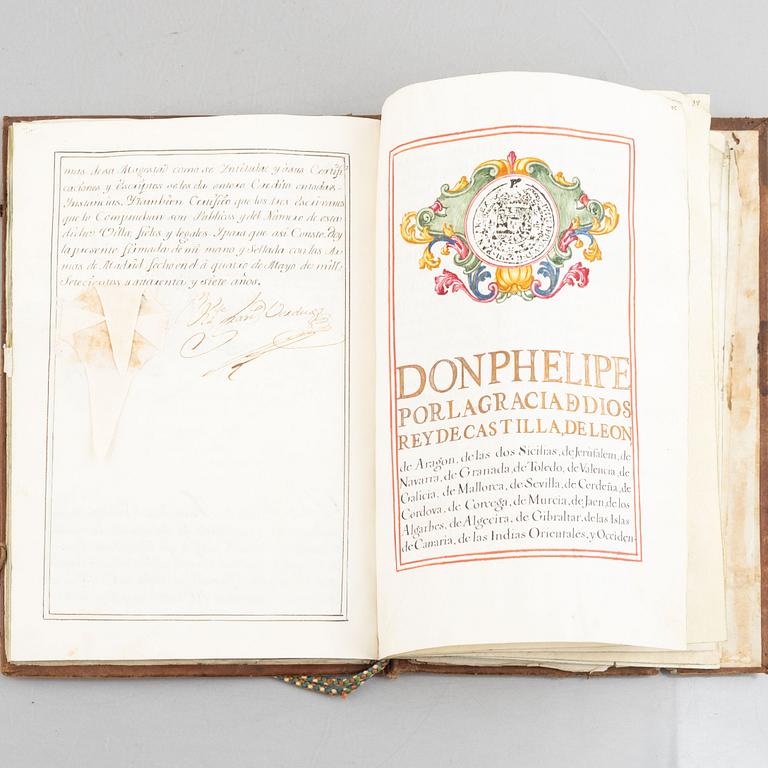 mas de su Magestad como se Intitula: y a sus Certifi-
caciones, y Escriptos se les da entera Credito en todas
Instancias, Y tambien Certifico que los tres Escrivanos
que lo Comprueban son Publicos y del Numero de esta
dicha Villa, fieles, y legales. Y para que asi Conste, doy
la presente firmada de mi mano y Sellada con las Ar-
mas de Madrid fecho en el a quatro de Mayo de mill
Setecientos y quarenta y siete años.
DON PHELIPE
POR LA GRACIA DE DIOS
REY DE CASTILLA, DE LEON
de Aragon, de las dos Sicilias, de Jerusalem, de
Navarra, de Granada, de Toledo, de Valencia, de
Galicia, de Mallorca, de Sevilla, de Cerdeña, de
Cordova, de Corcega, de Murcia, de Jaen, de los
Algarbes, de Algecira, de Gibraltar, de las Islas
de Canaria, de las Indias Orientales, y Occiden-